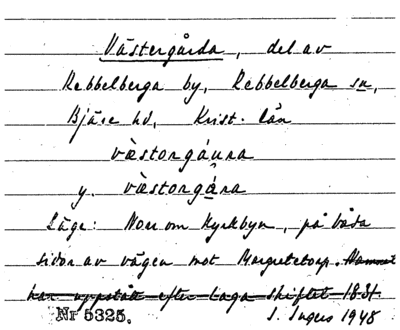 Västergårda, del av
Rebbelberga by, Rebbelberga sn,
Bjäre hd, Krist. län
væ̀storgáura
y. væ̀storgá̱ra
Läge: Norr om Kyrkbyn, på båda
sidor av vägen mot Margretetorp. Namnet
har uppstått efter laga skiftet 1831.
Nr 5325. I. Ingers 1948